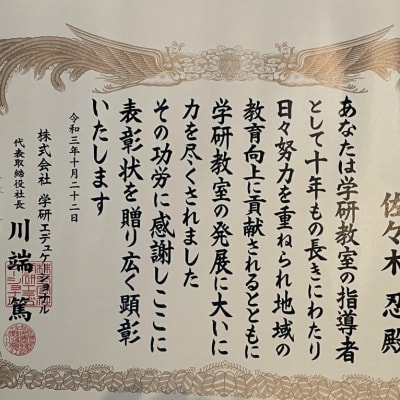 佐々木忍殿
あなたは学研教室の指導者
として十年もの長きにわたり
日々努力を重ねられ地域の
教育向上に貢献されるとともに
学研教室の発展に大いに
力を尽くされました
その功労に感謝しここに
表彰状を贈り広く顕彰
いたします
令和三年十月二十二日
株式会社 学研エデュケーショナル
代表取締役社長 川端 篤